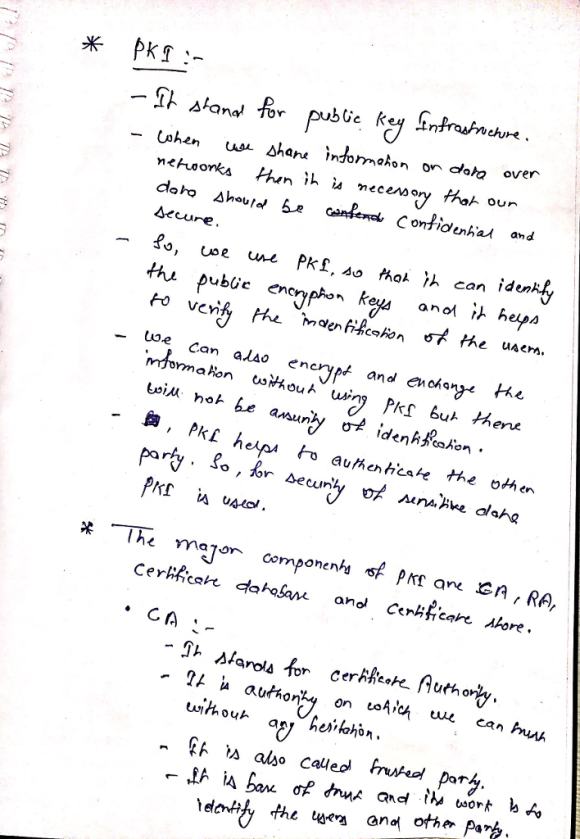 * PKI :-
- It stand for public key Infrastructure.
- When we share information or data over
networks then it is necessary that our
data should be confidential and
secure.
- So, we use PKI, so that it can identify
the public encryption keys and it helps
to verify the indentification of the users.
- We can also encrypt and exchange the
information without using PKI but there
will not be assurity of identification.
- , PKI helps to authenticate the other
party. So, for security of sensitive data
PKI is used.
* The major components of PKI are CA, RA,
Certificate database and certificate store.
• CA :-
- It stands for certificate Authority.
- It is authority on which we can trust
without any hesitation.
- It is also called trusted party.
- It is base of trust and its work is to
identify the users and other party.